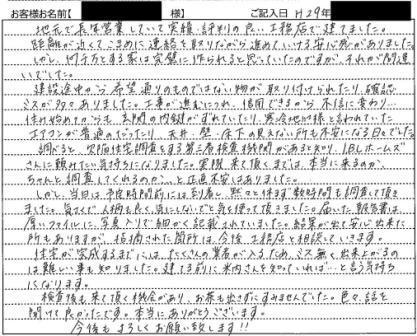 お客様お名前【 様】 ご記入日 H29年
地元で長年営業していて実績・評判の良い工務店で建てました。
距離が近くてこまめに連絡を取りながら進めていける安心感がありました。
しかし、何千万とする家は完璧に作られると思っていたのですが、それが間違
いでした。
建設途中から希望通りのものではない物が取り付けられたり、確認
ミスが多々ありました。工事が進むにつれ、信用できるから不信に変わり…
住み始めてからも玄関の内鍵がずれていたり、寒冷地仕様と言われていた
エアコンが普通のだったり 天井、壁、床下の見えない所も不安になる日々でした。
調べると、欠陥住宅調査をする第三者検査機関があると知り、IBLホームズ
さんに頼みたい気持ちになりました。実際、来て頂くまでは、本当に来るのか、
ちゃんと調査してくれるのか、…と正直不安はありました。
しかし、当日は予定時間前には到着し、黙々と休まず数時間も調査して頂き
ました。気さくで人柄も良く、気にしないでと気を使って頂きました。届いた報告書は
厚いファイルに、写真入りで細かく記載されていました。結果が出て安心出来た
所もありますが、指摘された箇所は今後工務店と相談していきます。
住宅が完成するまでには、たくさんの業者が入るため、ミス無く出来上がるの
は難しい事も知りました。建てる前に米内さんを知っていれば…と言う気持ち
になります。
検査後も来て頂く機会があり、お茶も出さずにすみませんでした。色々、話を
聞けて良かったです。本当にありがとうございます。
今後もよろしくお願い致します!!